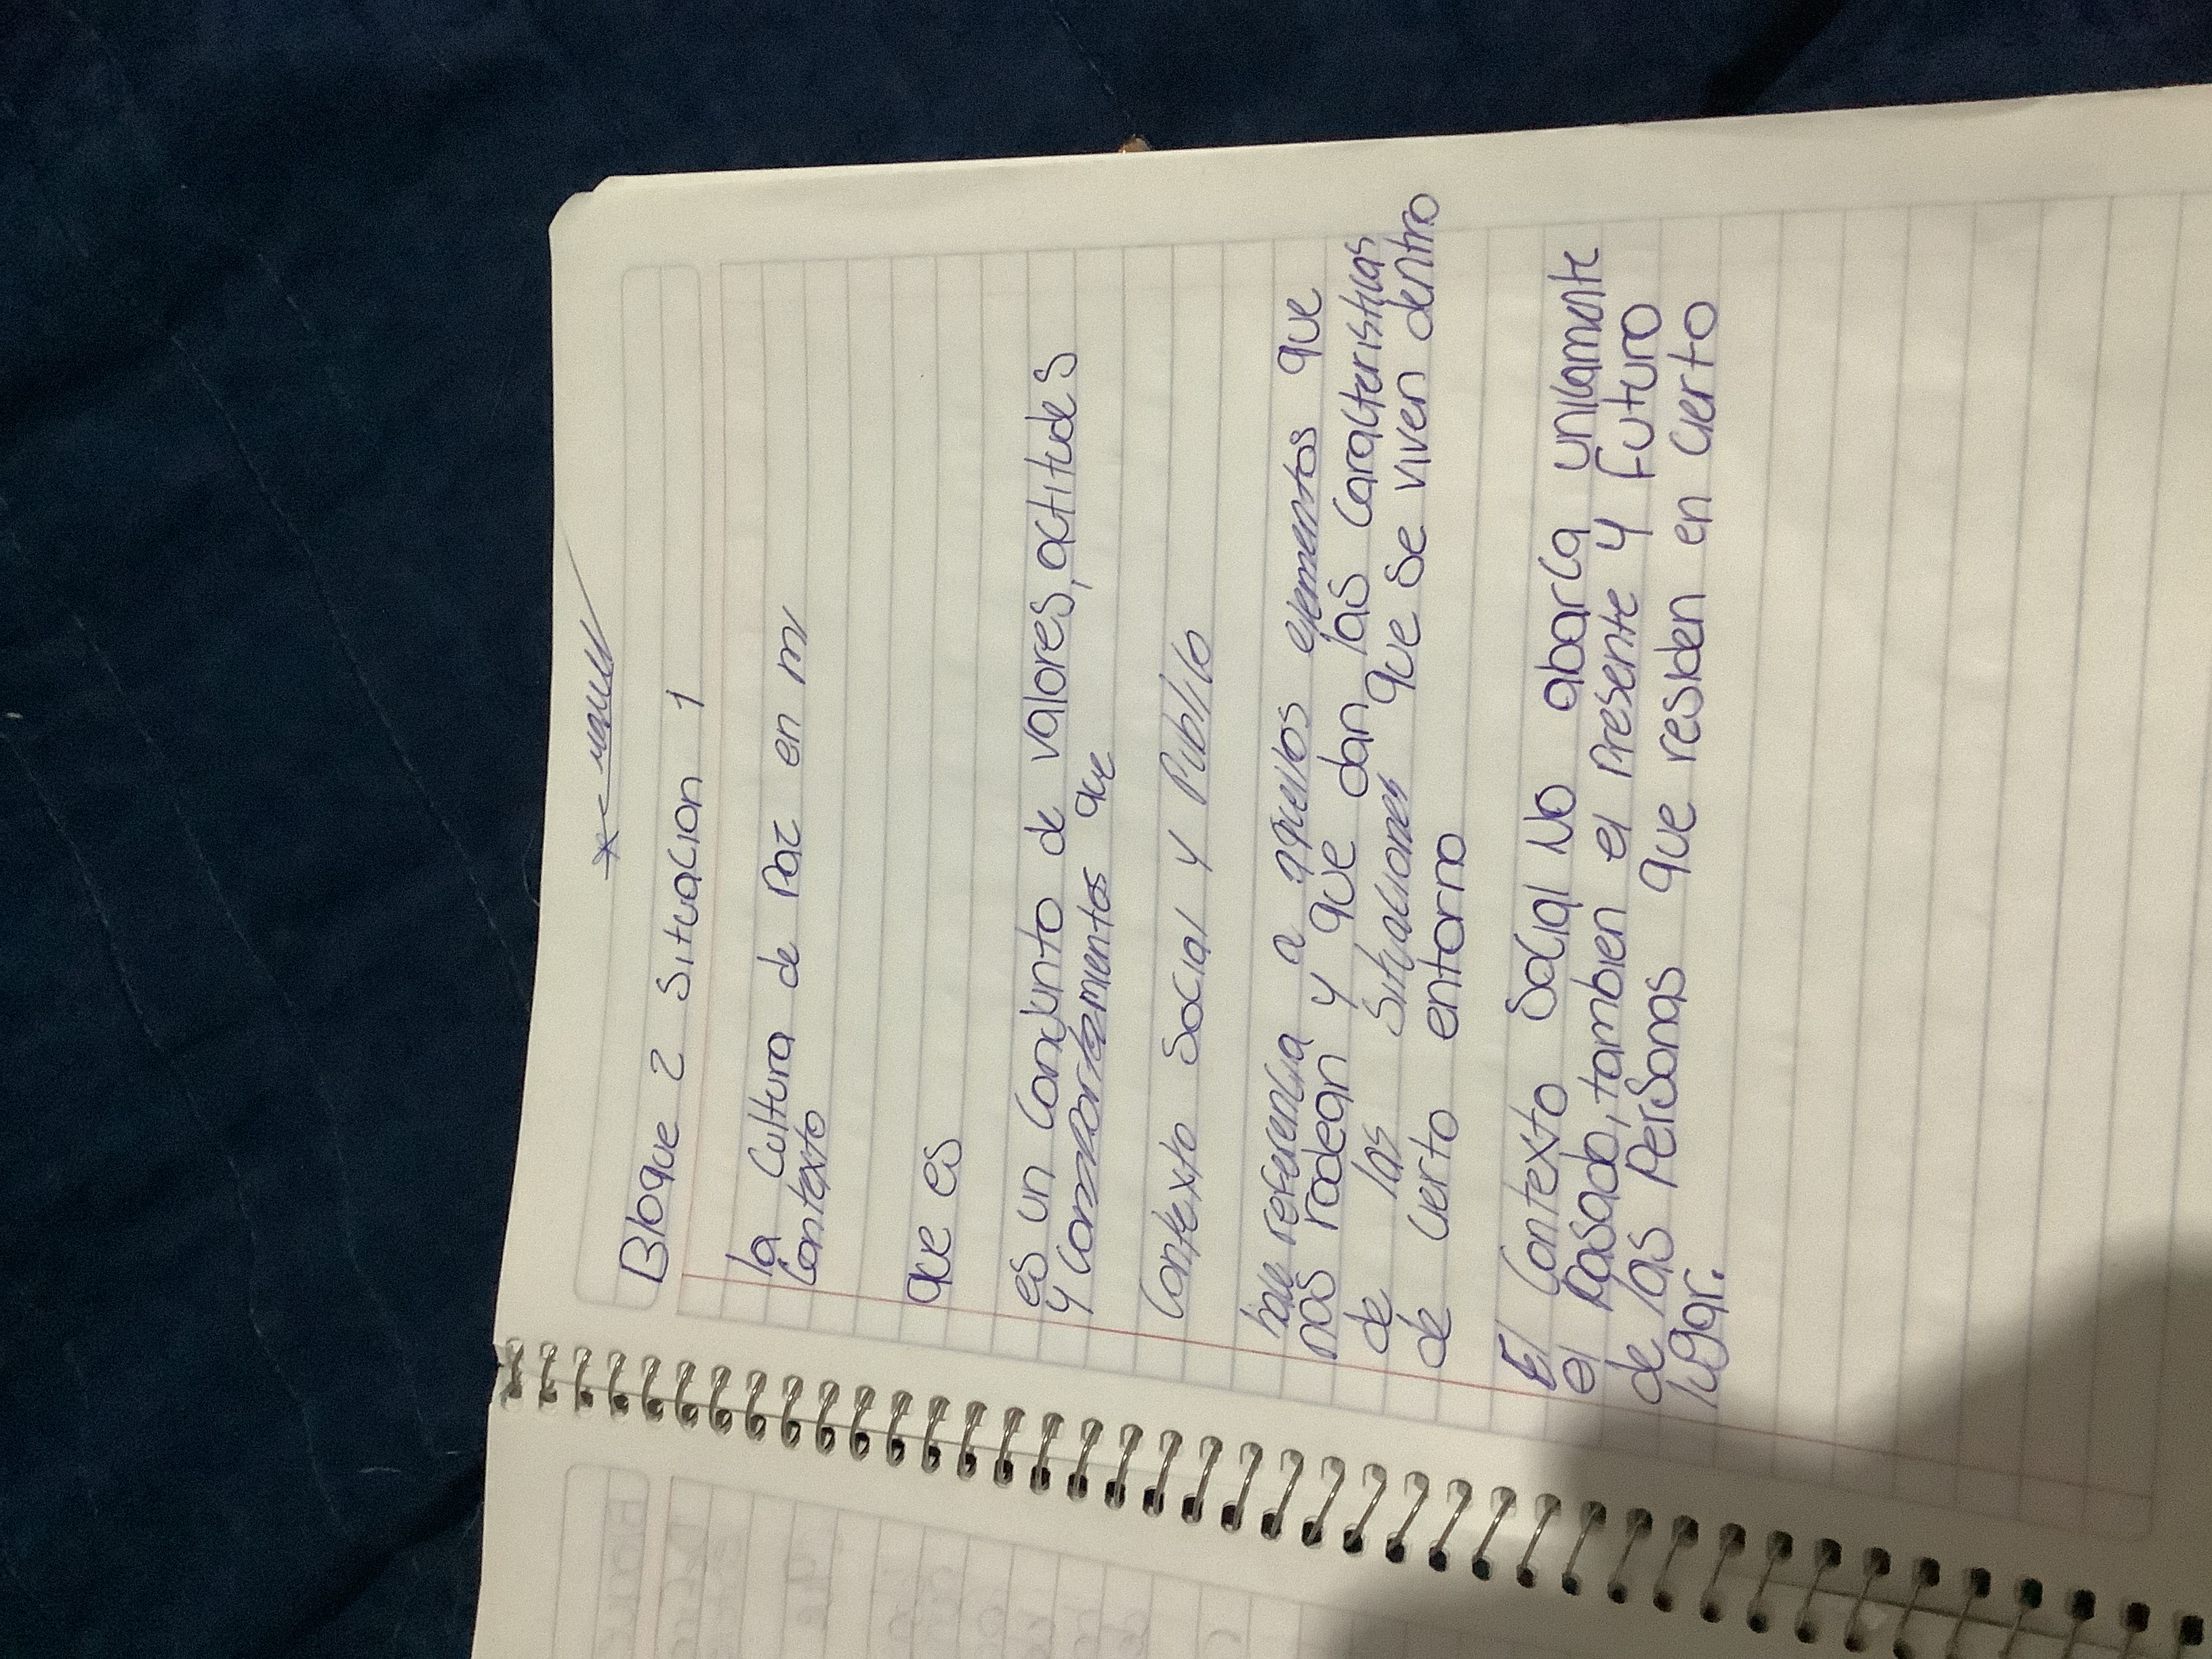 Bloque 2 Situacion 1
la Cultura de Paz en mi
Contexto
que es
es un Conjunto de valores, actitudes
y Comportemientos que
Contexto Social y Publico
hace referencia a aquellos elementos que
nos rodean y que dan las Caracteristicas
de las Situaciones que se viven dentro
de cierto entorno
El Contexto Social No abarca unicamente
el Pasado, tambien el Presente y Futuro
de las Personas que residen en cierto
lugar.